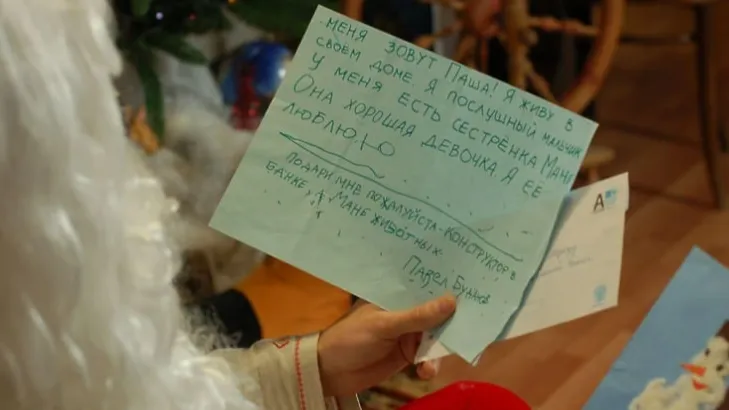 МЕНЯ ЗОВУТ ПАША! Я ЖИВУ В
СВОЕМ ДОМЕ. Я ПОСЛУШНЫЙ МАЛЬЧИК
У МЕНЯ ЕСТЬ СЕСТРЁНКА МАНЯ
ОНА ХОРОШАЯ ДЕВОЧКА. Я ЕЕ
ЛЮБЛЮ.
ПОДАРИ МНЕ ПОЖАЛУЙСТА - КОНСТРУКТОР В
БАНКЕ, А МАНЕ ЖИВОТНЫХ
ПАВЕЛ
А